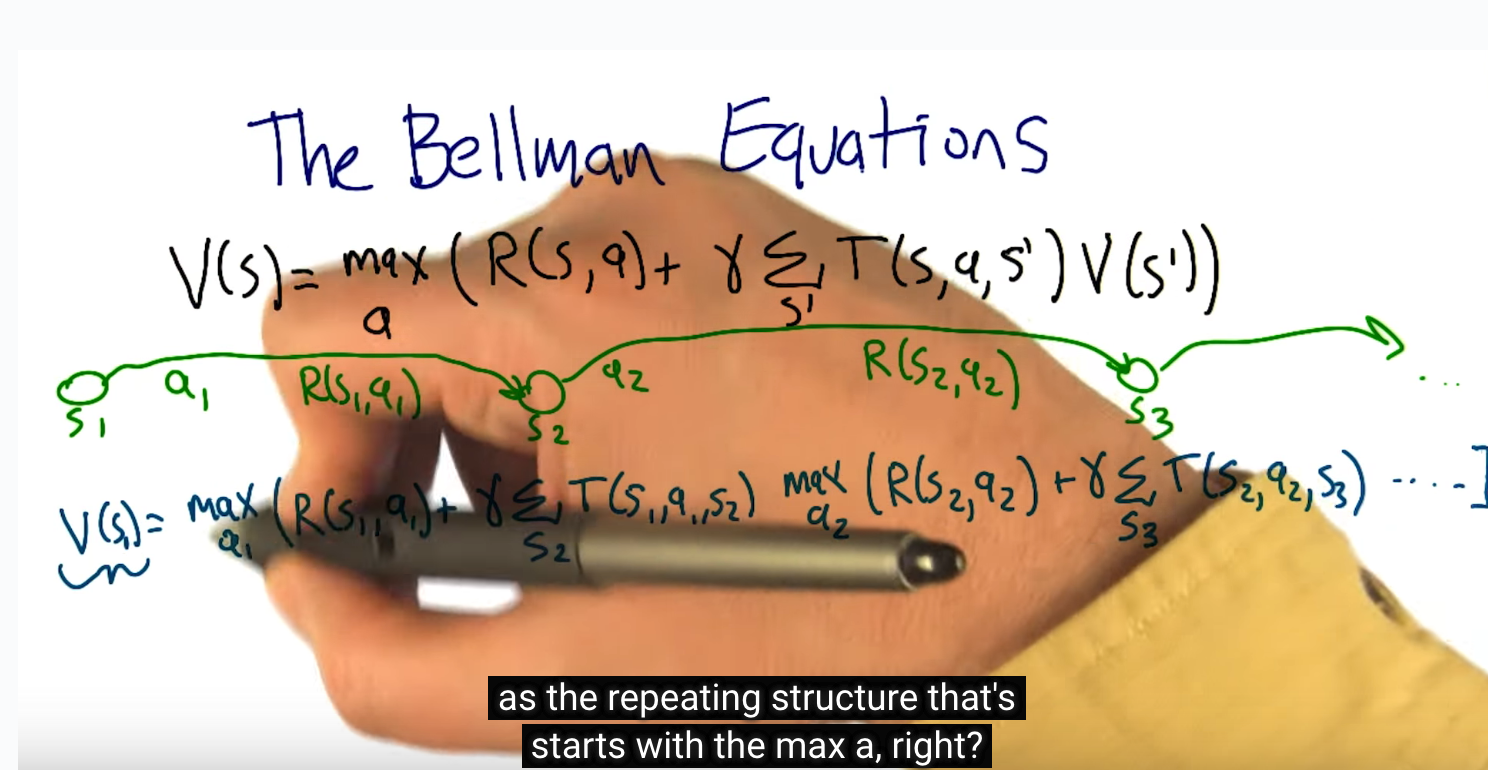 The Bellman Equations
V(s)= max ( R(s,a)+ γ Σ T(s,a,s') V(s'))
a s'
a1 R(s1,a1) a2 R(s2,a2) ...
s1 s2 s3
V(s1)= max (R(s1,a1)+ γ Σ T(s1,a1,s2) max (R(s2,a2)+γ Σ T(s2,a2,s3) .....]
a1 s2 a2 s3
as the repeating structure that's
starts with the max a, right?